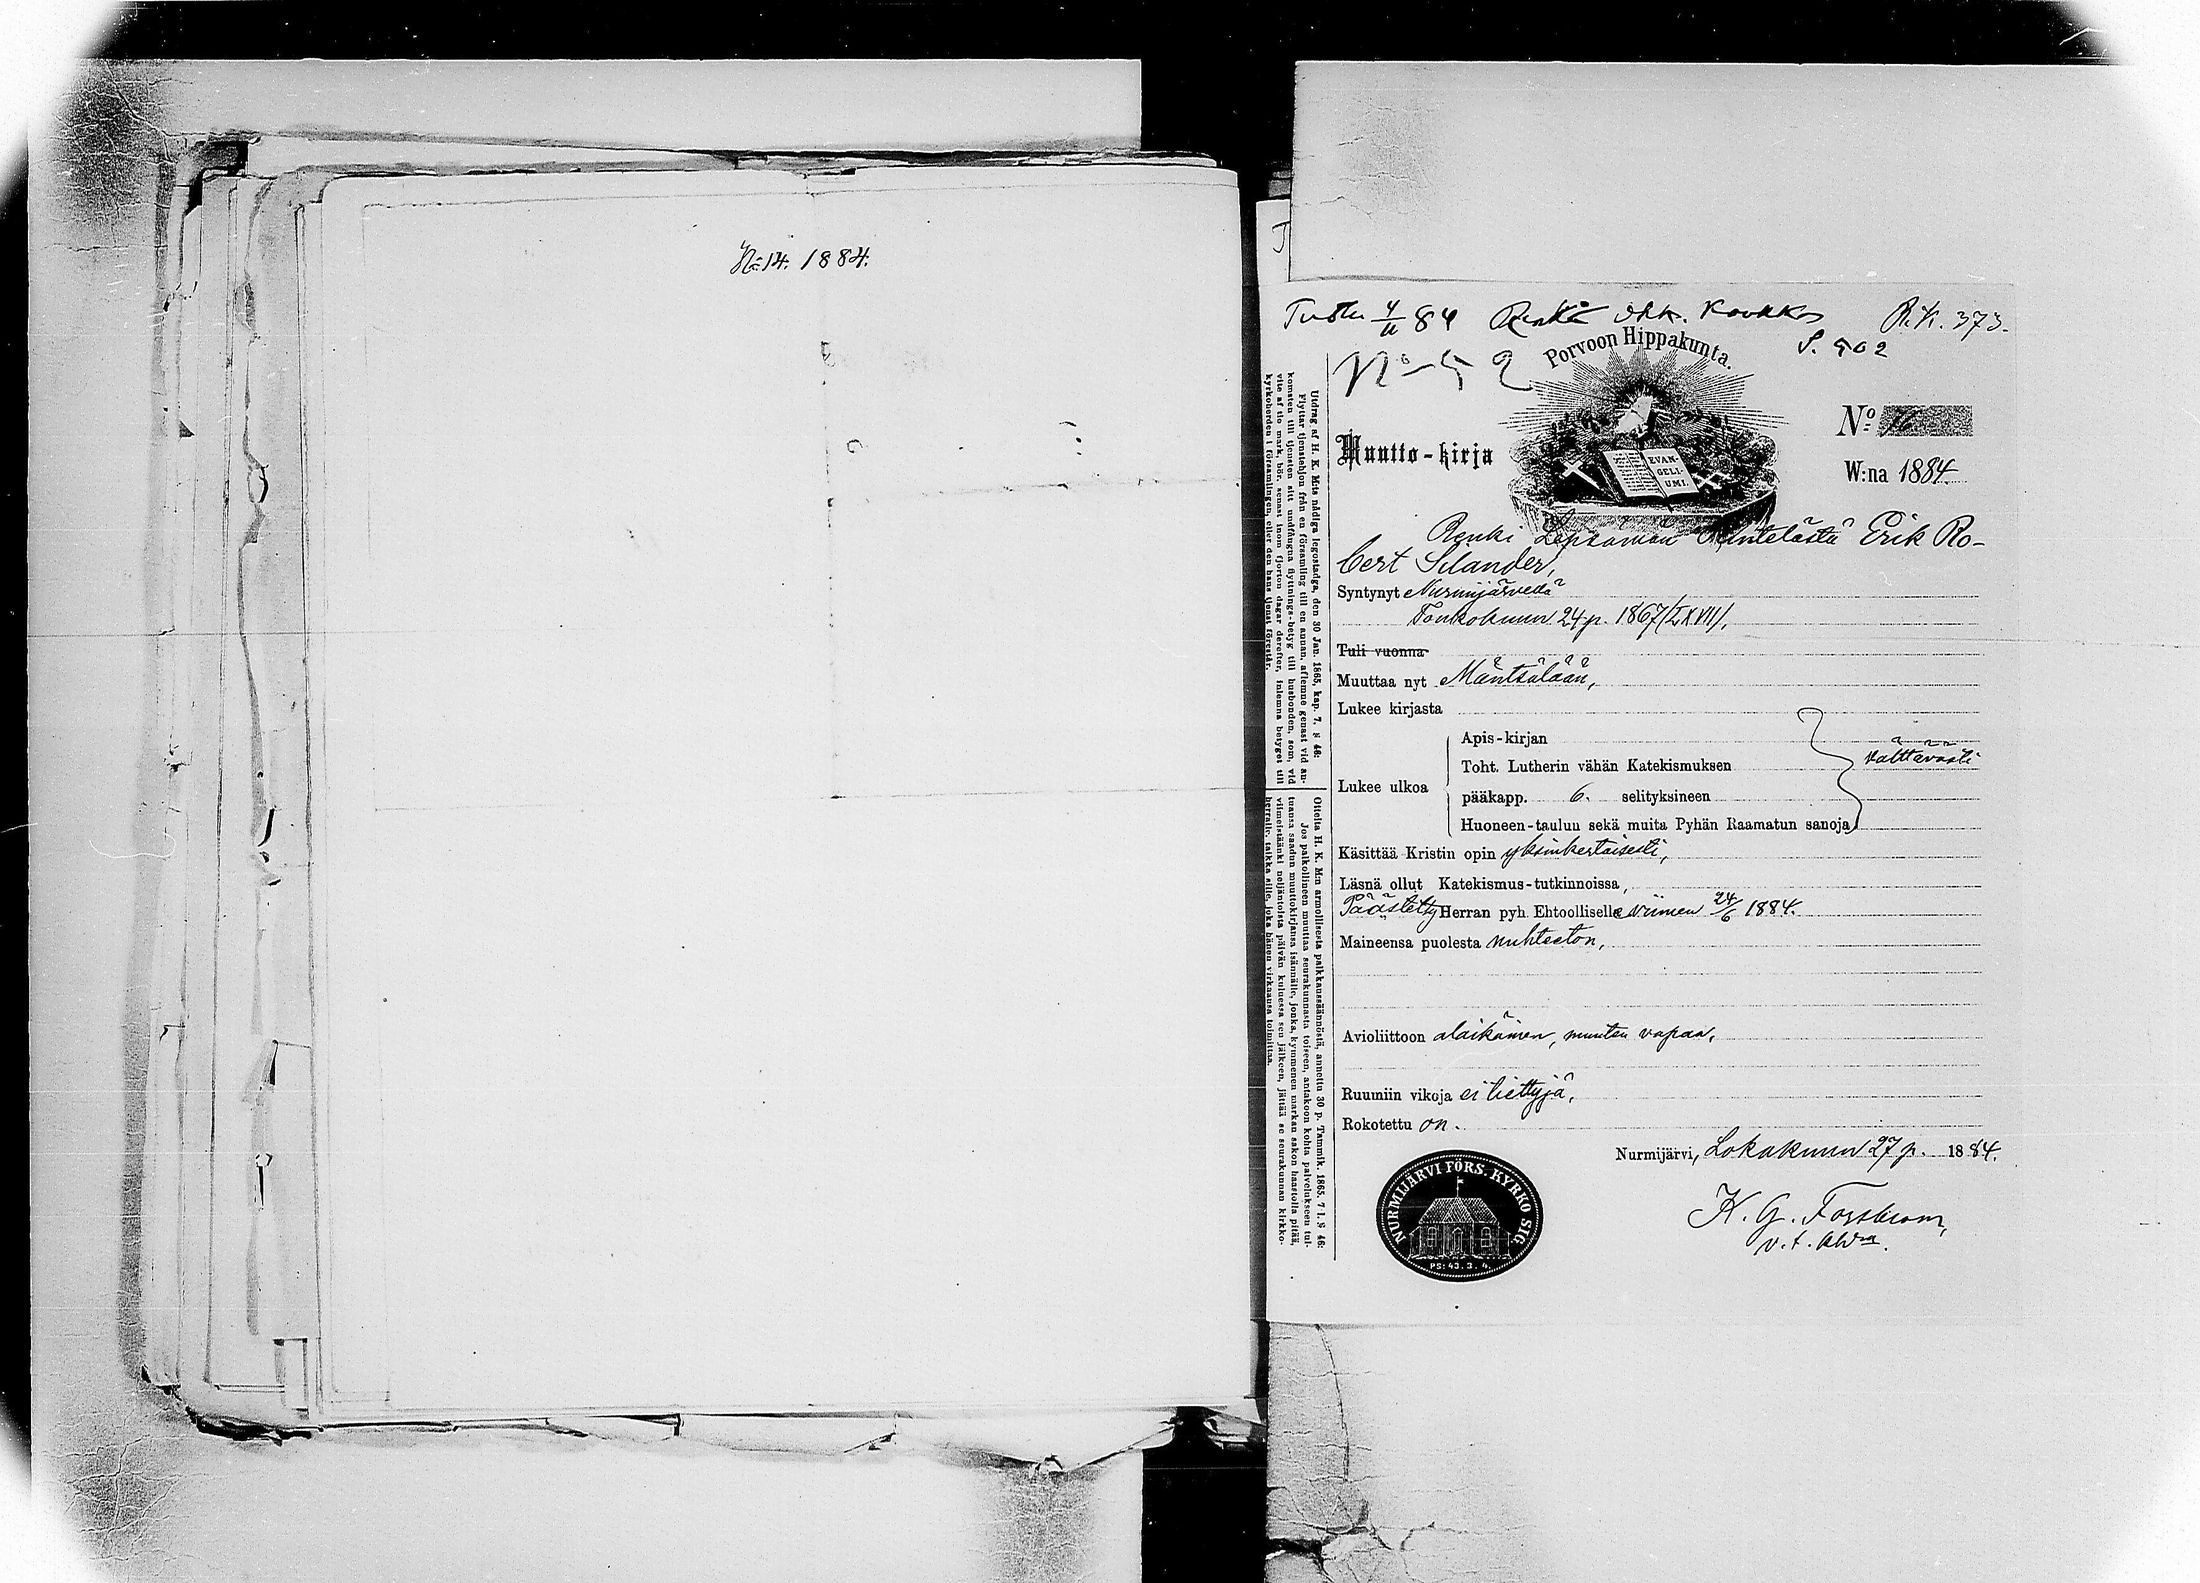 No 14. 1884.
84 Renki
R.K. 373.
S. 502
No 52
Porvoon Hippakunta.
Muutto-kirja
EVAN-
GELI-
UMI.
No 76
W:na 1884.
Renki Lepsämän Erik Ro-
bert Silander,
Syntynyt Nurmijärvellä
Toukokuun 24 p. 1867 (LXVII),
Tuli vuonna
Muuttaa nyt Mäntsälään,
Lukee kirjasta
Apis-kirjan
Toht. Lutherin vähän Katekismuksen
välttävästi
Lukee ulkoa
pääkapp. 6. selityksineen
Huoneen-taulun sekä muita Pyhän Raamatun sanoja
Käsittää Kristin opin yksinkertaisesti,
Läsnä ollut Katekismus-tutkinnoissa,
Päästetty Herran pyh. Ehtoolliselle viimen 24/6 1884.
Maineensa puolesta nuhteeton,
Avioliittoon alaikäinen, muuten vapaa.
Ruumiin vikoja ei tiettyjä.
Rokotettu on.
Nurmijärvi, Lokakuun 27 p. 1884.
K. G. Forsbom,
v. t.
NURMIJÄRVI FÖRS. KYRKO SIG.
PS: 43. 3. 4.
Utdrag af H. K. Mits nådiga legostadga, den 30 Jan. 1865, kap. 7. § 46:
Flyttar tjenstehjon från en församling till en annan, aflemne genast vid an-
komsten till tjensten sitt undfångna flyttnings-betyg till husbonden, som, vid
vite af tio mark, bör, senast inom fjorton dagar derefter, inlemna betyget till
kyrkoherden i församlingen, eller den hans tjenst förestår.
Otteita H. K. M:n armollisesta palkkaussäännöstä, annettu 30 p. Tammik. 1865, 7 l. § 46:
Jos palkollineen muuttaa seurakunnasta toiseen, antakoon kohta palvelukseen tul-
tuansa saadun muuttokirjansa isännälle, jonka, kymmenen markan sakon haastolla pitää,
viimeistäänki neljäntoista päivän kuluessa sen jälkeen, jättää se seurakunnan kirkko-
herralle, taikka sille, joka hänen virkaansa toimittaa.